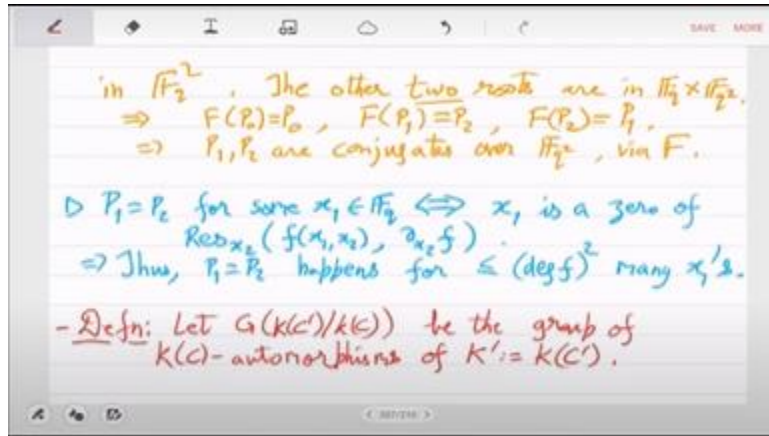 SAVE MORE
in 𝔽_q². The other two roots are in 𝔽_q × 𝔽_q².
⇒ F(P₀)=P₀, F(P₁)=P₂, F(P₂)=P₁.
⇒ P₁,P₂ are conjugates over 𝔽_q², via F.
▷ P₁=P₂ for some x₁∈𝔽_q ⇔ x₁ is a zero of
Res_x₂(f(x₁,x₂), ∂_x₂f).
⇒ Thus, P₁=P₂ happens for ≤ (deg f)² many x₁'s.
- Defn: Let G(K(C')/k(C)) be the group of
K(C)-automorphisms of K' := K(C').